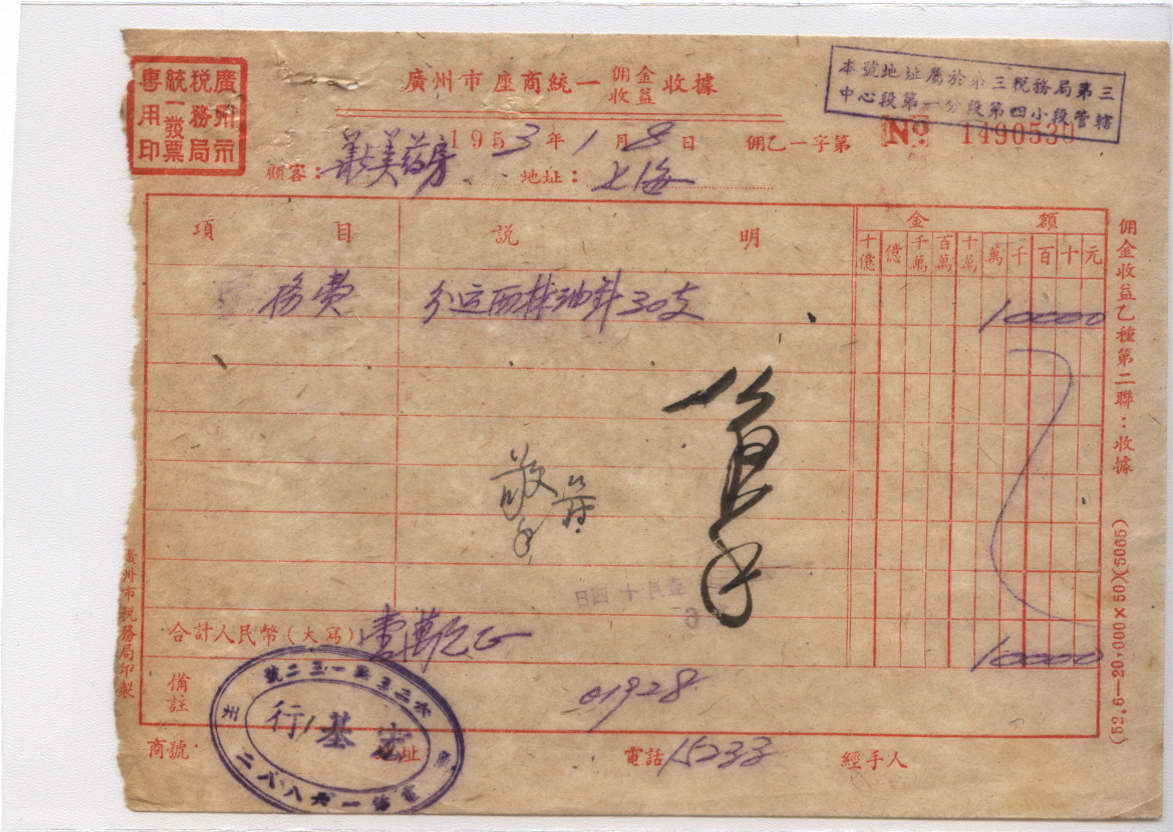 廣州市
税務局
統一發票
專用印
廣州市座商統一佣金收益收據
本號地址屬於第三税務局第三
中心段第一分段第四小段管轄
1953年1月8日 佣乙一字第 No. 1490530
顧客: 美药房 地址: 上海
項目 説明 金額
十億 億 千萬 百萬 十萬 萬 千 百 十 元
務費 30支 10000
壹月十四日
6
合計人民幣(大寫) 壹萬元正 10000
備註 01928
商號: 址 電話 15233 經手人
宏基行
佣金收益乙種第二聯:收據
(52.6—20,000×50)(5065)
廣州市税務局印製